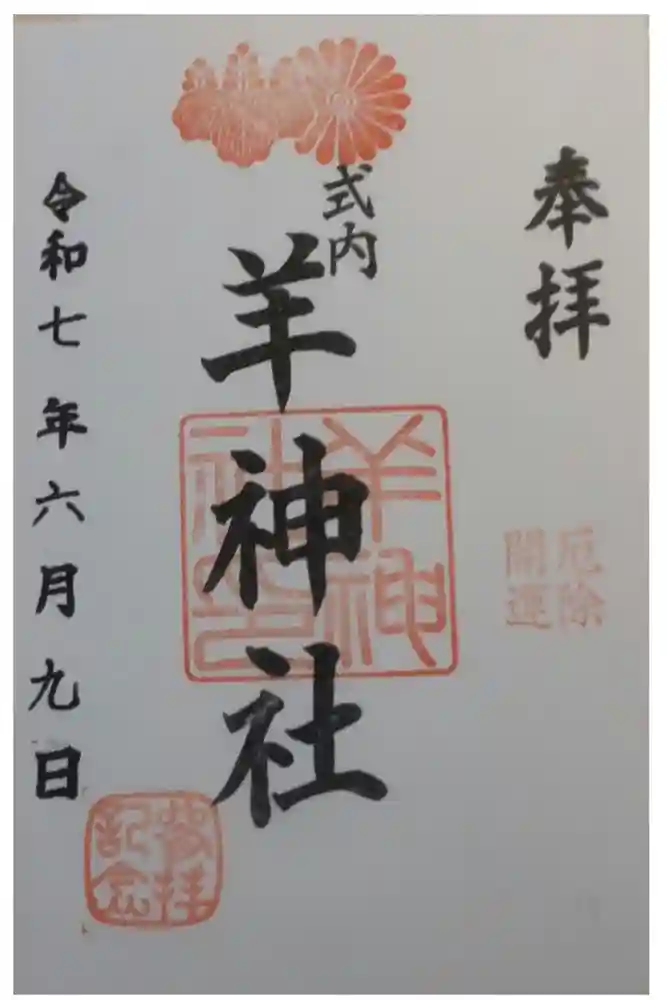 奉拝
厄除
開運
式内
羊神社
羊神社印
令和七年六月九日
参拝
記念